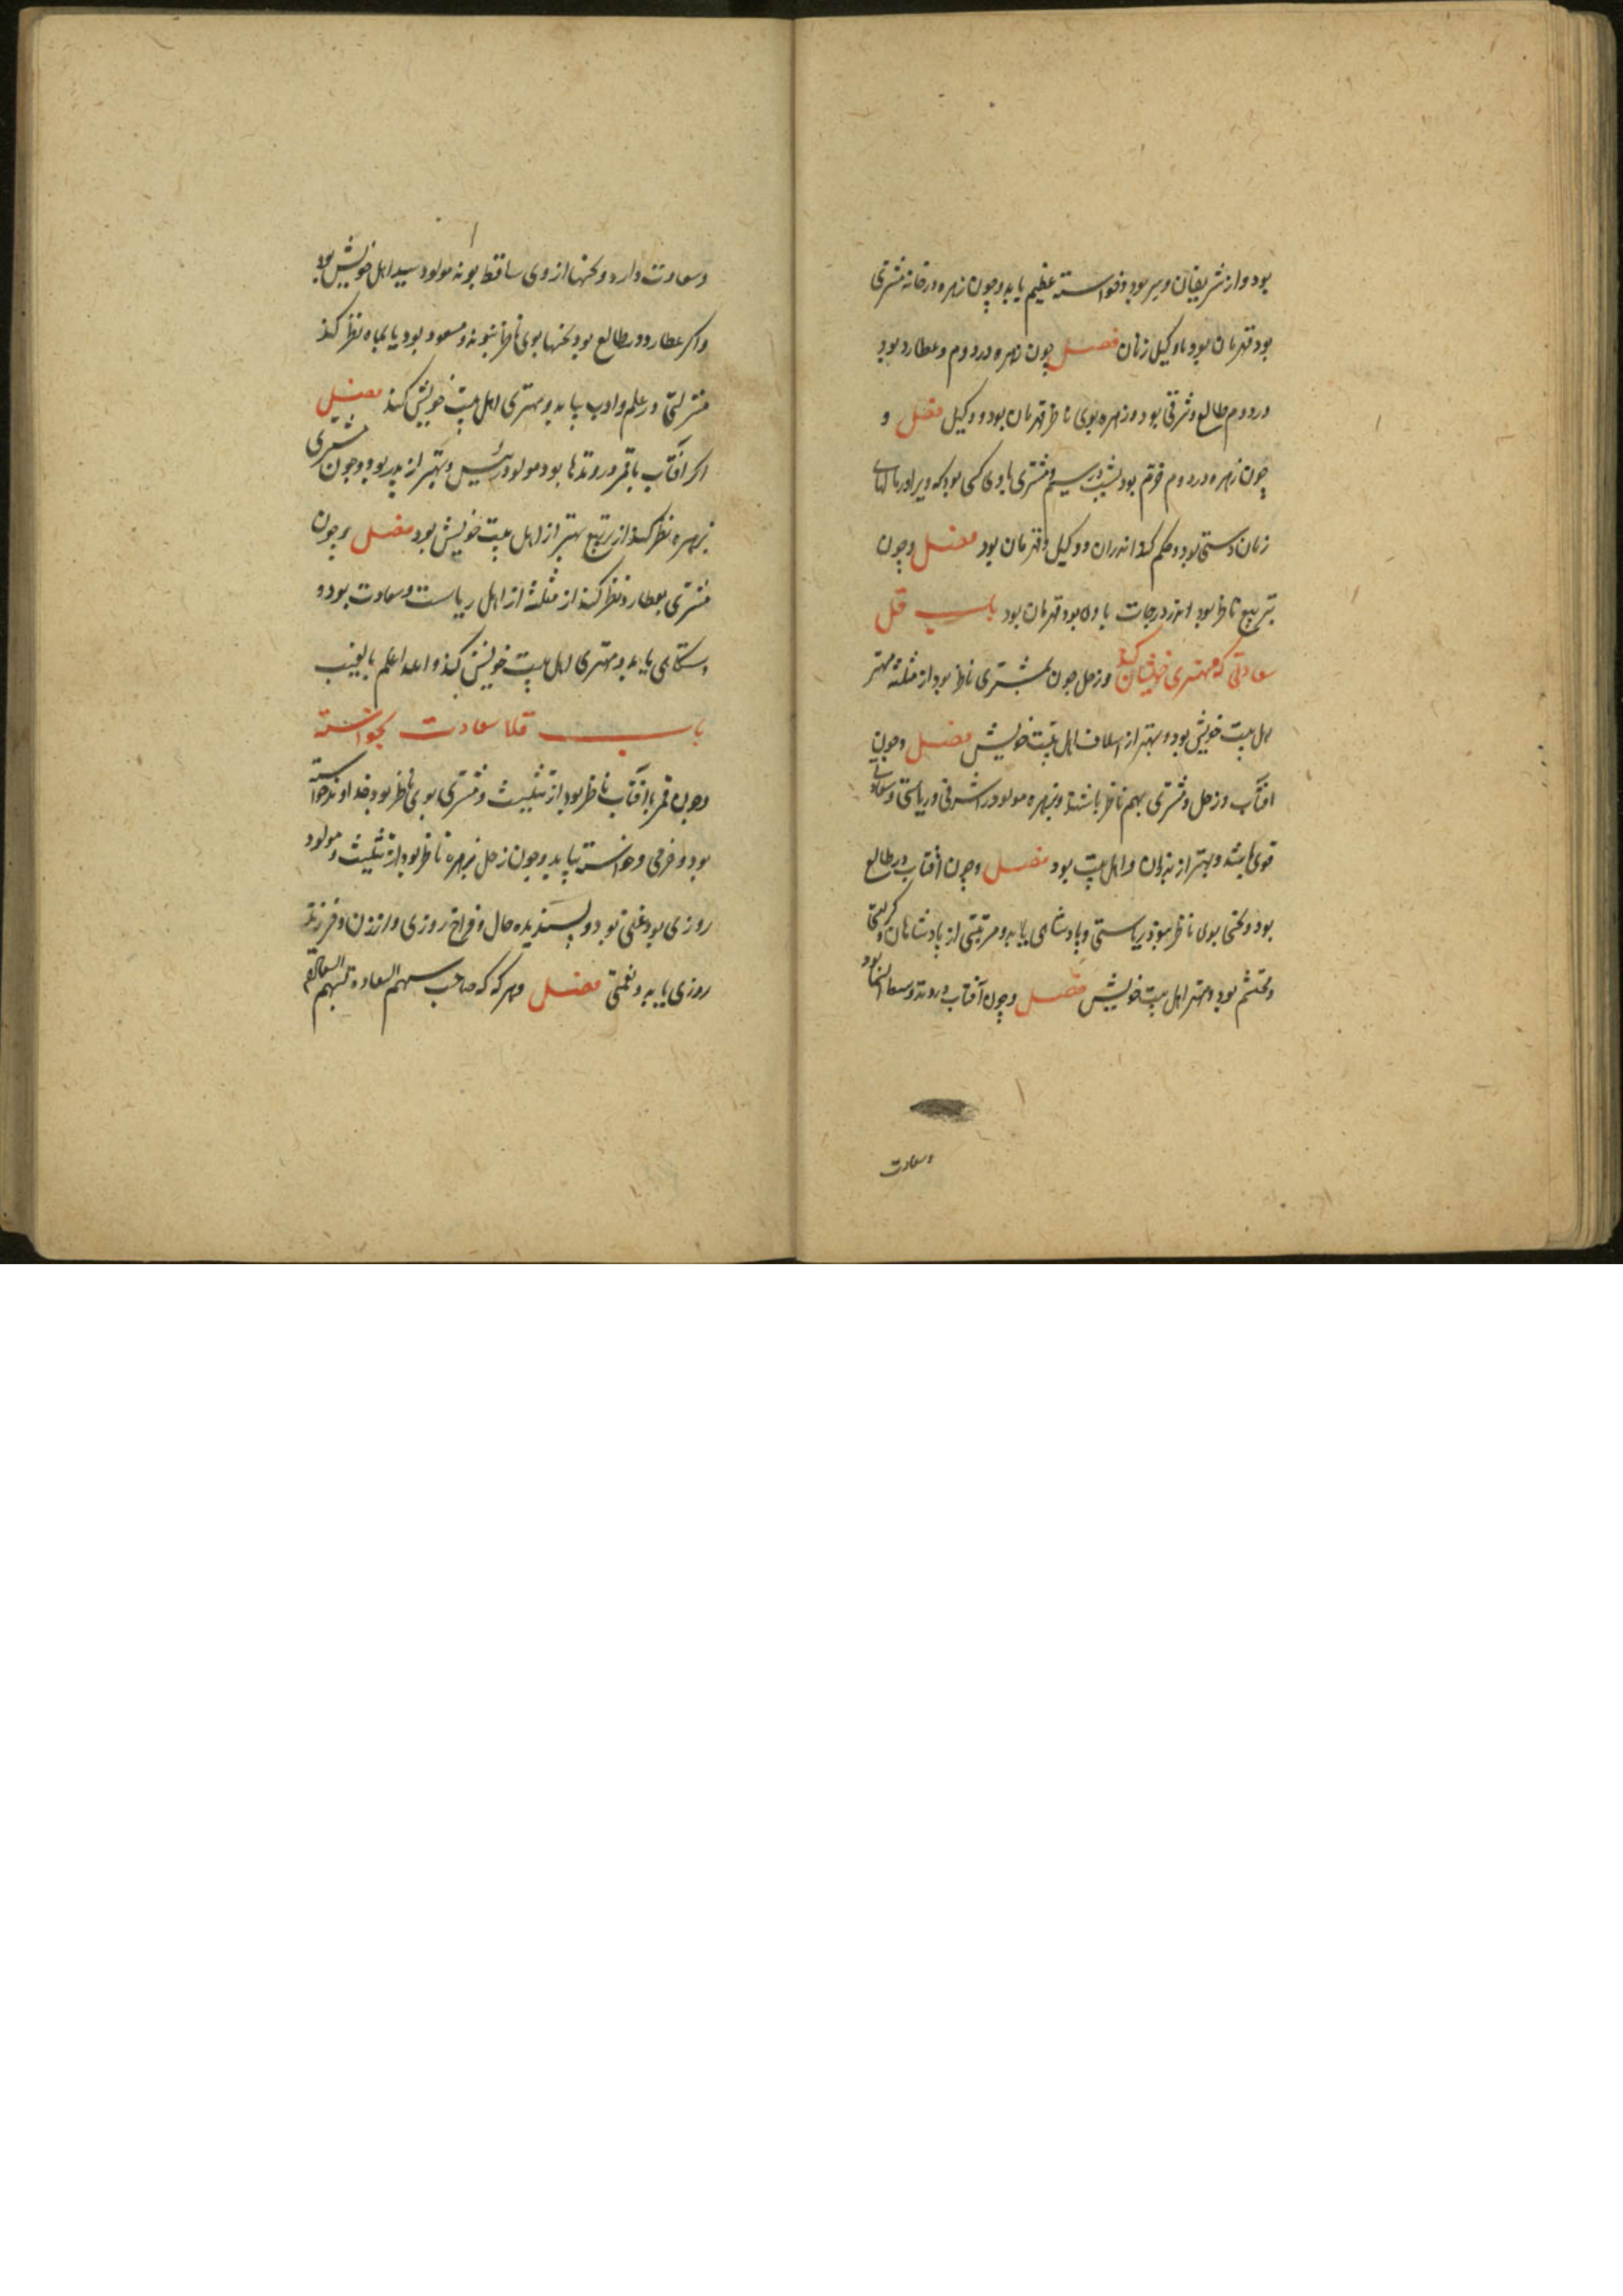 بود و از شریفان و سر بود و خواسته عظیم یابد و چون زهره در خانه مشتری
بود قهرمان بود یا وکیل زنان فصل چون زهره در دوم و عطارد بود
در دوم طالع و شرقی بود و زهره بوی ناظر قهرمان بود و وکیل فصل و
چون زهره در دوم قوم بود بشب در سیم و مشتری با وی کسی بود که ویرا درمانهای
زنان دستی بود و حکم کند اندران و وکیل و قهرمان بود فصل و چون
بتربیع ناظر بود اندر درجات با وی بود قهرمان بود باب قل
سعادتی که مهتری خویشان کند و زحل چون بمشتری ناظر بود از مثلثه مهتر
اهل بیت خویش بود و بهتر از اسلاف اهل بیت خویش فصل و چون
افتاب و زحل و مشتری بهم ناظر باشند و بزهره مولود را شرفی و ریاستی و سعادتی
قوی باشد و بهتر از پدران و اهل بیت بود فصل و چون افتاب در طالع
بود و نحسی بوی ناظر نبود ریاستی و پادشاهی یابد و مرتبتی از پادشاهان و
و محتشم بود و مهتر اهل بیت خویش فصل و چون آفتاب در وتد و سعد
وسعادت
و سعادت دارد و نحسها از وی ساقط بوند مولود سید اهل خویش بود
و اکر عطارد در طالع بود نحسها بوی ناظر نبوند و مسعود بود یا بماه نظر کند
منزلتی در علم و ادب بیابد و مهتری اهل بیت خویش کند فصل
اکر افتاب با قمر در وتدها بود مولود رئیس و بهتر از پدر بود و چون مشتری
بزهره نظر کند از تربیع بهتر از اهل بیت خویش بود فصل و چون
مشتری بعطارد نظر کند از مثلثه از اهل ریاست و سعادت بود و
دستکاهی یابد و مهتری اهل بیت خویش کند و الله اعلم بالغیب
باب قلا سعادت بخواسته
و چون قمر بآفتاب ناظر بود از تثلیث و مشتری بوی ناظر بود خداوند خواسته
بود و خرمی و خواسته بیابد و چون زحل بزهره ناظر بود از تثلیث و مولود
روزی بود غنی بود و پسندیده حال و فراخ روزی و از زن و فرزند
روزی یابد و نعمتی فصل و هر که که صاحب سهم السعاده بسهم السعاده